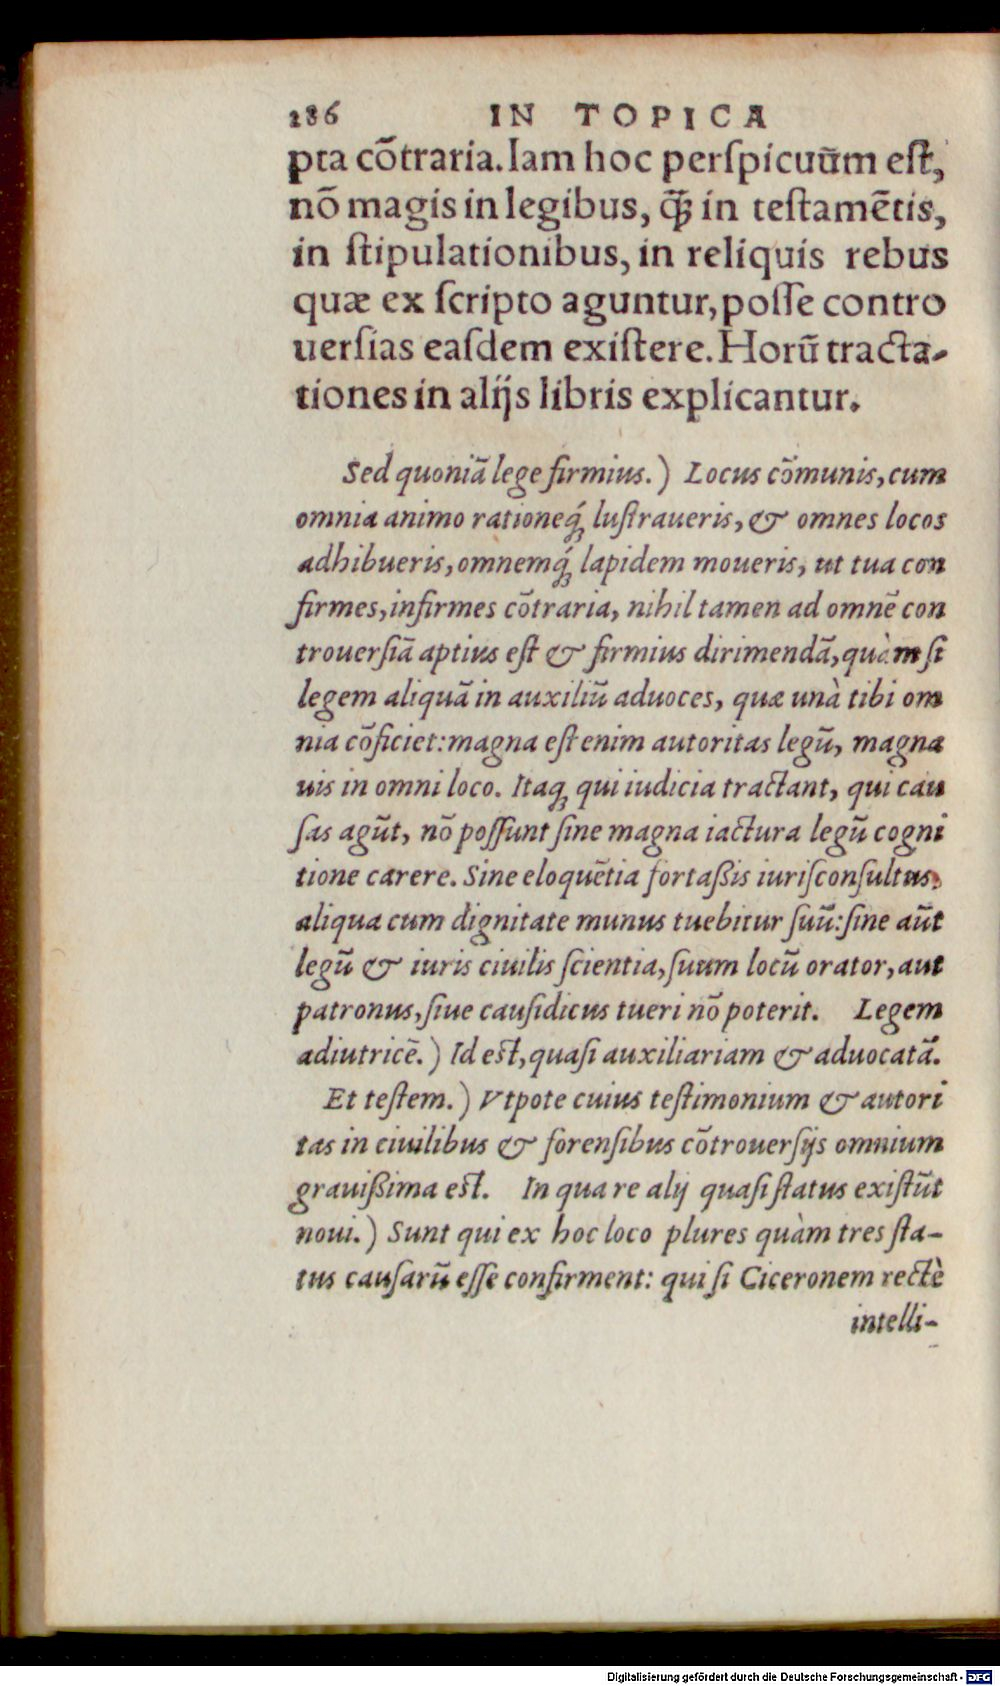 186 IN TOPICA
pta cõtraria. Iam hoc perſpicuũm eſt,
nõ magis in legibus, q̃ꝫ in teſtamẽtis,
in ſtipulationibus, in reliquis rebus
quæ ex ſcripto aguntur, poſſe contro
uerſias eaſdem exiſtere. Horũ tracta-
tiones in alijs libris explicantur.
Sed quoniã lege firmius.) Locus cõmunis, cum
omnia animo rationeq́ꝫ luſtraueris, & omnes locos
adhibueris, omnemq́ꝫ lapidem moueris, ut tua con
firmes, infirmes cõtraria, nihil tamen ad omnẽ con
trouerſiã aptius eſt & firmius dirimendã, quàm ſi
legem aliquã in auxiliũ aduoces, quæ unà tibi om
nia cõficiet: magna eſt enim autoritas legũ, magna
uis in omni loco. Itaqꝫ qui iudicia tractant, qui cau
ſas agũt, nõ poſſunt ſine magna iactura legũ cogni
tione carere. Sine eloquẽtia fortaßis iuriſconſultus,
aliqua cum dignitate munus tuebitur ſuũ: ſine aũt
legũ & iuris ciuilis ſcientia, ſuum locũ orator, aut
patronus, ſiue cauſidicus tueri nõ poterit. Legem
adiutricẽ.) Id eſt, quaſi auxiliariam & aduocatã.
Et teſtem.) Vtpote cuius teſtimonium & autori
tas in ciuilibus & forenſibus cõtrouerſijs omnium
grauißima eſt. In qua re alij quaſi ſtatus exiſtũt
noui.) Sunt qui ex hoc loco plures quàm tres ſta-
tus cauſarũ eſſe confirment: qui ſi Ciceronem rectè
intelli-
Digitalisierung gefördert durch die Deutsche Forschungsgemeinschaft - DFG